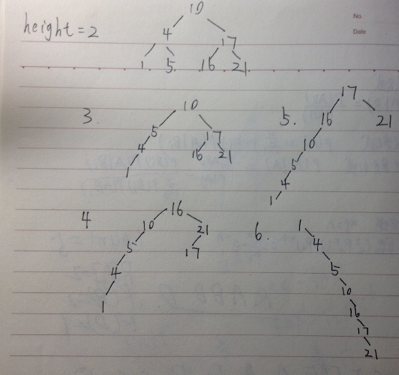 No
Date
height=2
10
4 17
1 5 16 21
3.
10
5 17
4 16 21
1
5.
17
16 21
10
5
4
1
4
16
10 21
5 17
4
1
6.
1
4
5
10
16
17
21